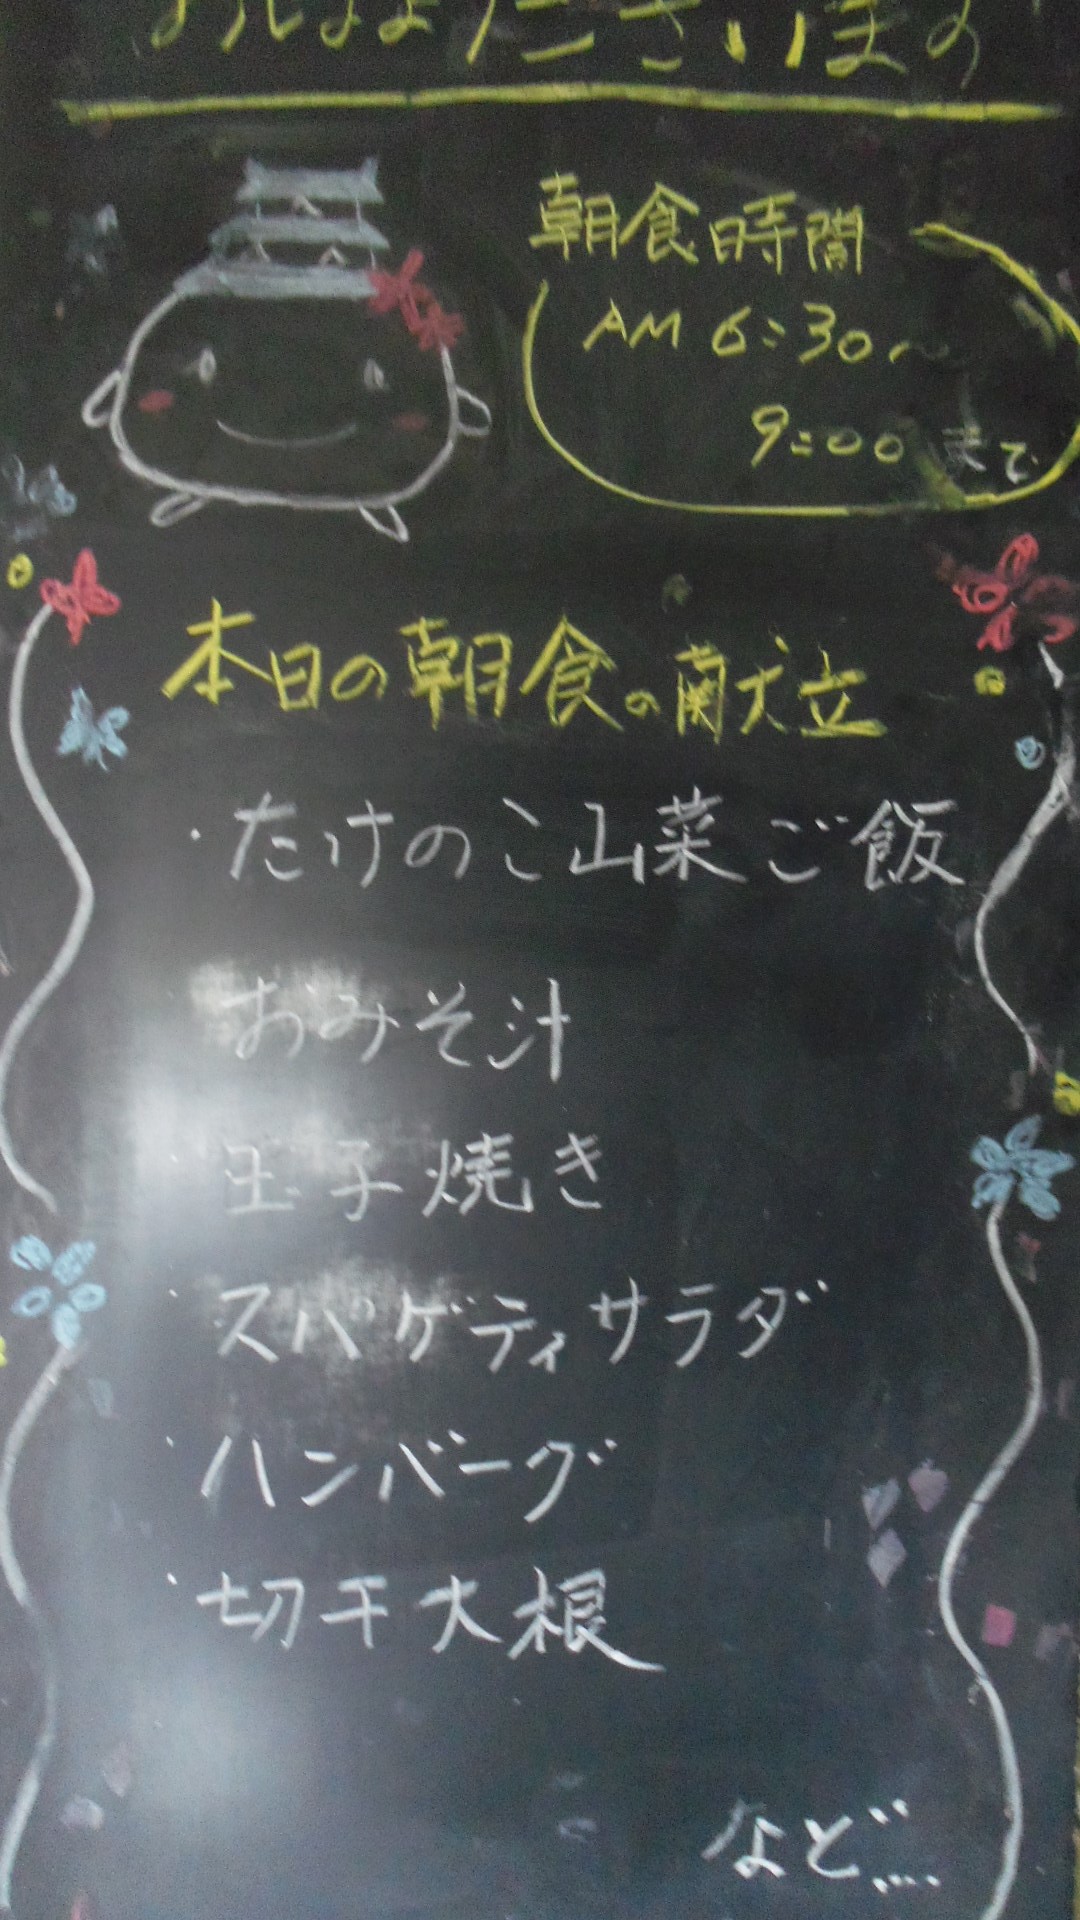 おはようございます
朝食時間
AM 6:30~
9:00 まで
本日の朝食の献立
・たけのこ山菜ご飯
おみそ汁
・玉子焼き
・スパゲティサラダ
・ハンバーグ
・切干大根
など....